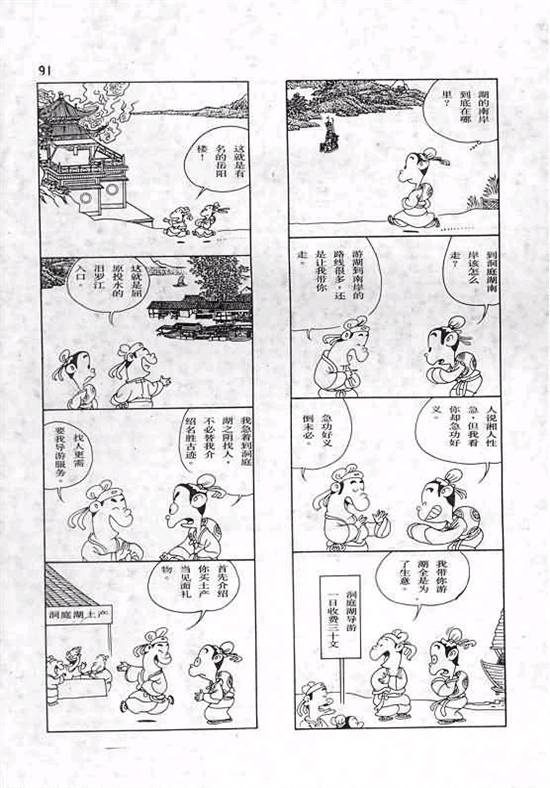 91
湖的南岸
到底在哪
里？
到洞庭湖南
岸该怎么
走？
游湖到南岸的
路线很多，还
是让我带你
走。
人说湘人性
急，但我看
你却急功好
义。
急功好义
倒未必。
我带你游
湖全是为
了生意。
洞庭湖导游
一日收费三十文
这就是有
名的岳阳
楼！
这就是屈
原投水的
汨罗江
入口。
我急着到洞庭
湖之阴找人，
不必替我介
绍名胜古迹。
找人更需
要我导游服务。
首先介绍
你买土产
当见面礼
物。
洞庭湖土产